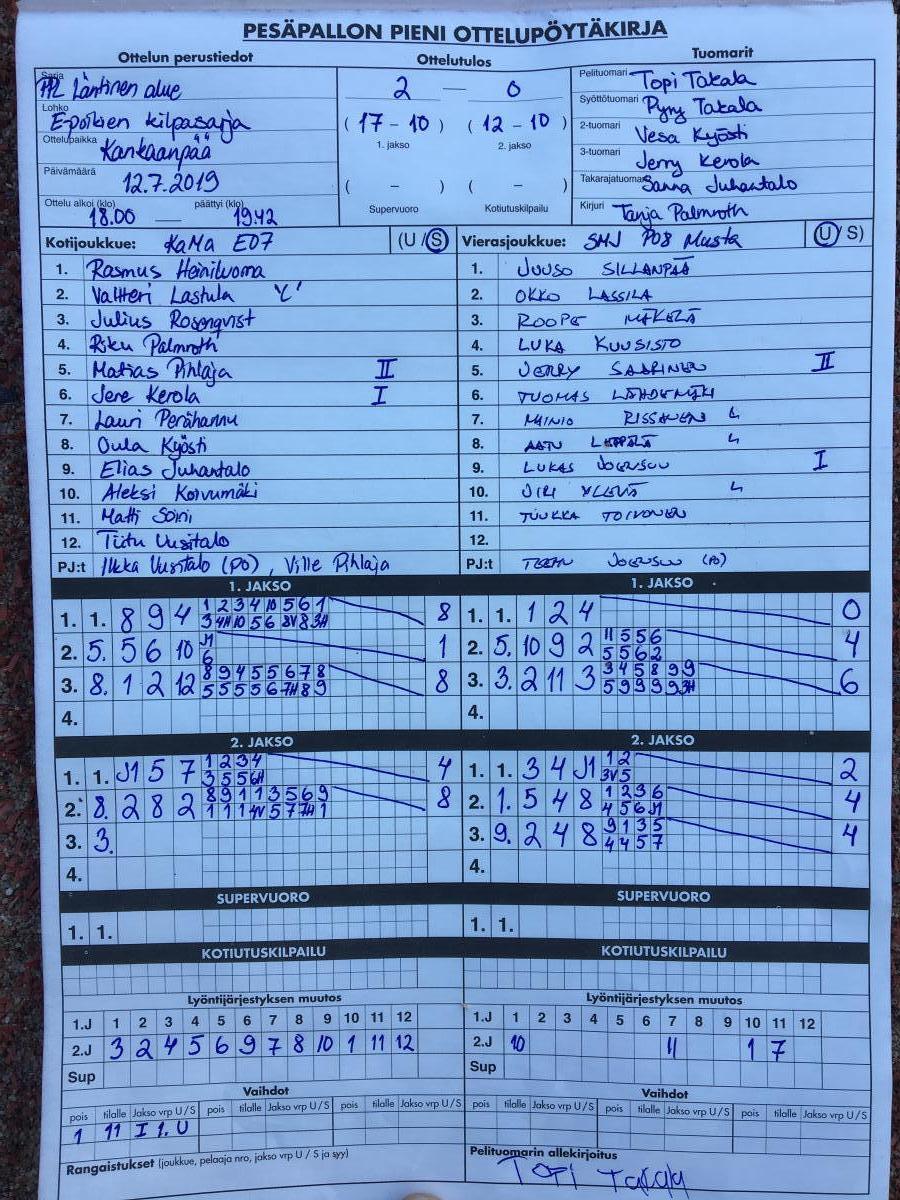 PESÄPALLON PIENI OTTELUPÖYTÄKIRJA
Ottelun perustiedot
Sarja
PPL Läntinen alue
Lohko
E-poikien kilpasarja
Ottelupaikka
Kankaanpää
Päivämäärä
12.7.2019
Ottelu alkoi (klo) päättyi (klo)
18.00 — 19.42
Ottelutulos
2 — 0
( 17 - 10 ) ( 12 - 10 )
1. jakso 2. jakso
( - ) ( - )
Supervuoro Kotiutuskilpailu
Tuomarit
Pelituomari Topi Takala
Syöttötuomari Pyry Takala
2-tuomari Vesa Kyösti
3-tuomari Jerry Kerola
Takarajatuomari Sanna Juhantalo
Kirjuri Tanja Palmroth
Kotijoukkue: KaMa E07 (U / S)
1. Rasmus Heiniluoma
2. Valtteri Lastula "C"
3. Julius Rosenqvist
4. Riku Palmroth
5. Matias Pihlaja II
6. Jere Kerola I
7. Lauri Perähannu
8. Oula Kyösti
9. Elias Juhantalo
10. Aleksi Koivumäki
11. Matti Soini
12. Tiitu Uusitalo
PJ:t Ilkka Uusitalo (PJ), Ville Pihlaja
Vierasjoukkue: SMJ P08 Musta (U / S)
1. JUUSO SILLANPÄÄ
2. OKKO LASSILA
3. ROOPE MÄKELÄ
4. LUKA KUUSISTO
5. JERRY SAARINEN II
6. TUOMAS LÄHDEMÄKI
7. MAINIO RISSANEN L
8. AATU LEPPÄLÄ L
9. LUKAS JOENSUU I
10. JIRI L
11. TUUKKA TOIVONEN
12.
PJ:t JOENSUU
1. JAKSO
1. 1. 8 9 4 1 2 3 4 10 5 6 1 8
3 4H 10 5 6 8V 8 3H
2. 5. 5 6 10 J1 1
6
3. 8. 1 2 12 8 9 4 5 5 6 7 8 8
5 5 5 5 6 7H 8 9
4.
1. JAKSO
1. 1. 1 2 4 0
2. 5. 10 9 2 11 5 5 6 4
5 5 6 2
3. 3. 2 11 3 3 4 5 8 9 9 6
5 9 9 9 9 3H
4.
2. JAKSO
1. 1. J1 5 7 1 2 3 4 4
3 5 5 6H
2. 8. 2 8 2 8 9 1 1 3 5 6 9 8
1 1 1 4V 5 7 7H 1
3. 3.
4.
2. JAKSO
1. 1. 3 4 J1 1 2 2
3V 5
2. 1. 5 4 8 1 2 3 6 4
4 5 6 J1
3. 9. 2 4 8 9 1 3 5 4
4 4 5 7
4.
SUPERVUORO
1. 1.
SUPERVUORO
1. 1.
KOTIUTUSKILPAILU
KOTIUTUSKILPAILU
Lyöntijärjestyksen muutos
1.J 1 2 3 4 5 6 7 8 9 10 11 12
2.J 3 2 4 5 6 9 7 8 10 1 11 12
Sup
Lyöntijärjestyksen muutos
1.J 1 2 3 4 5 6 7 8 9 10 11 12
2.J 10 11 1 7
Sup
Vaihdot
pois tilalle Jakso vrp U / S pois tilalle Jakso vrp U / S pois tilalle Jakso vrp U / S
1 11 I 1. U
Rangaistukset (joukkue, pelaaja nro, jakso vrp U / S ja syy)
Vaihdot
pois tilalle Jakso vrp U / S pois tilalle Jakso vrp U / S pois tilalle Jakso vrp U / S
Pelituomarin allekirjoitus
TOPI TAKALA